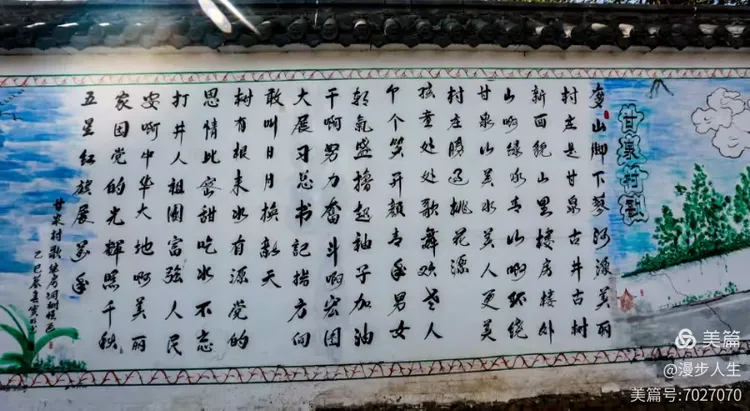 甘泉村歌
山脚下河源美丽
村庄是甘泉古井古村
新面貌山里楼房楼外
山啊绿水青山啊环绕
甘泉山美水美人更美
村庄胜过桃花源
孩童处处歌舞欢老人
个个笑开颜青年男女
朝气盛撸起袖子加油
干啊努力奋斗啊宏图
大展习总书记指方向
敢叫日月换新天
树有根来水有源党的
恩情比蜜甜吃水不忘
打井人祖国富强人民
安啊中华大地啊美丽
家园党的光辉照千秋
五星红旗展万年
甘泉村歌
乙巳春
美篇
@漫步人生
美篇号:7027070